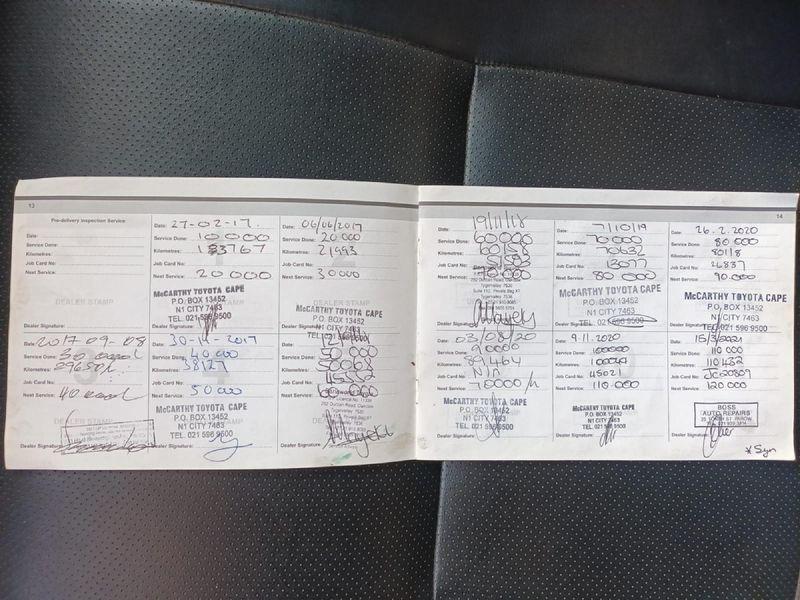 13
Pre-delivery Inspection Service
Date:
Service Done:
Kilometres:
Job Card No:
Next Service:
DEALER STAMP
Dealer Signature:
Date: 27-02-17.
Service Done: 10000
Kilometres:
Job Card No:
Next Service: 20000
McCARTHY TOYOTA CAPE
P.O. BOX 13452
N1 CITY 7463
TEL. 021 596 9500
Dealer Signature:
Date: 06/06/2017
Service Done: 20 000
Kilometres: 21993
Job Card No:
Next Service: 30000
DEALER STAMP
McCARTHY TOYOTA CAPE
P.O. BOX 13452
N1 CITY 7463
TEL. 021 596 9500
Dealer Signature:
Date: 2017-09-08
Service Done:
Kilometres:
Job Card No:
Next Service:
Dealer Signature:
Date: 30-14-2017
Service Done: 40 000
Kilometres: 38127
Job Card No:
Next Service: 50 000
McCARTHY TOYOTA CAPE
P.O. BOX 13452
N1 CITY 7463
TEL. 021 596 9500
Dealer Signature:
Date:
Service Done: 50 000
Kilometres: 50063
Job Card No:
Next Service:
Dealer Signature:
14
Date: 19/11/18
Service Done: 60 000
Kilometres:
Job Card No:
Next Service:
Dealer Signature:
Date: 7/10/19
Service Done: 70 000
Kilometres: 70632
Job Card No: 13077
Next Service: 80 000
McCARTHY TOYOTA CAPE
P.O. BOX 13452
N1 CITY 7463
TEL. 021 596 9500
Dealer Signature:
Date: 26.2.2020
Service Done: 80 000
Kilometres: 80118
Job Card No: 26837
Next Service: 90.000
McCARTHY TOYOTA CAPE
P.O. BOX 13452
N1 CITY 7463
TEL. 021 596 9500
Dealer Signature:
Date: 03/08/20
Service Done: 90000
Kilometres:
Job Card No:
Next Service:
McCARTHY TOYOTA CAPE
P.O. BOX 13452
N1 CITY 7463
TEL. 021 596 9500
Dealer Signature:
Date: 9.11.2020
Service Done: 100000
Kilometres:
Job Card No: 45021
Next Service: 110.000
McCARTHY TOYOTA CAPE
P.O. BOX 13452
N1 CITY 7463
TEL. 021 596 9500
Dealer Signature:
Date: 15/3/2021
Service Done: 110 000
Kilometres: 110 432
Job Card No: JC20809
Next Service: 120 000
BOSS
AUTO REPAIRS
Dealer Signature:
*Syn